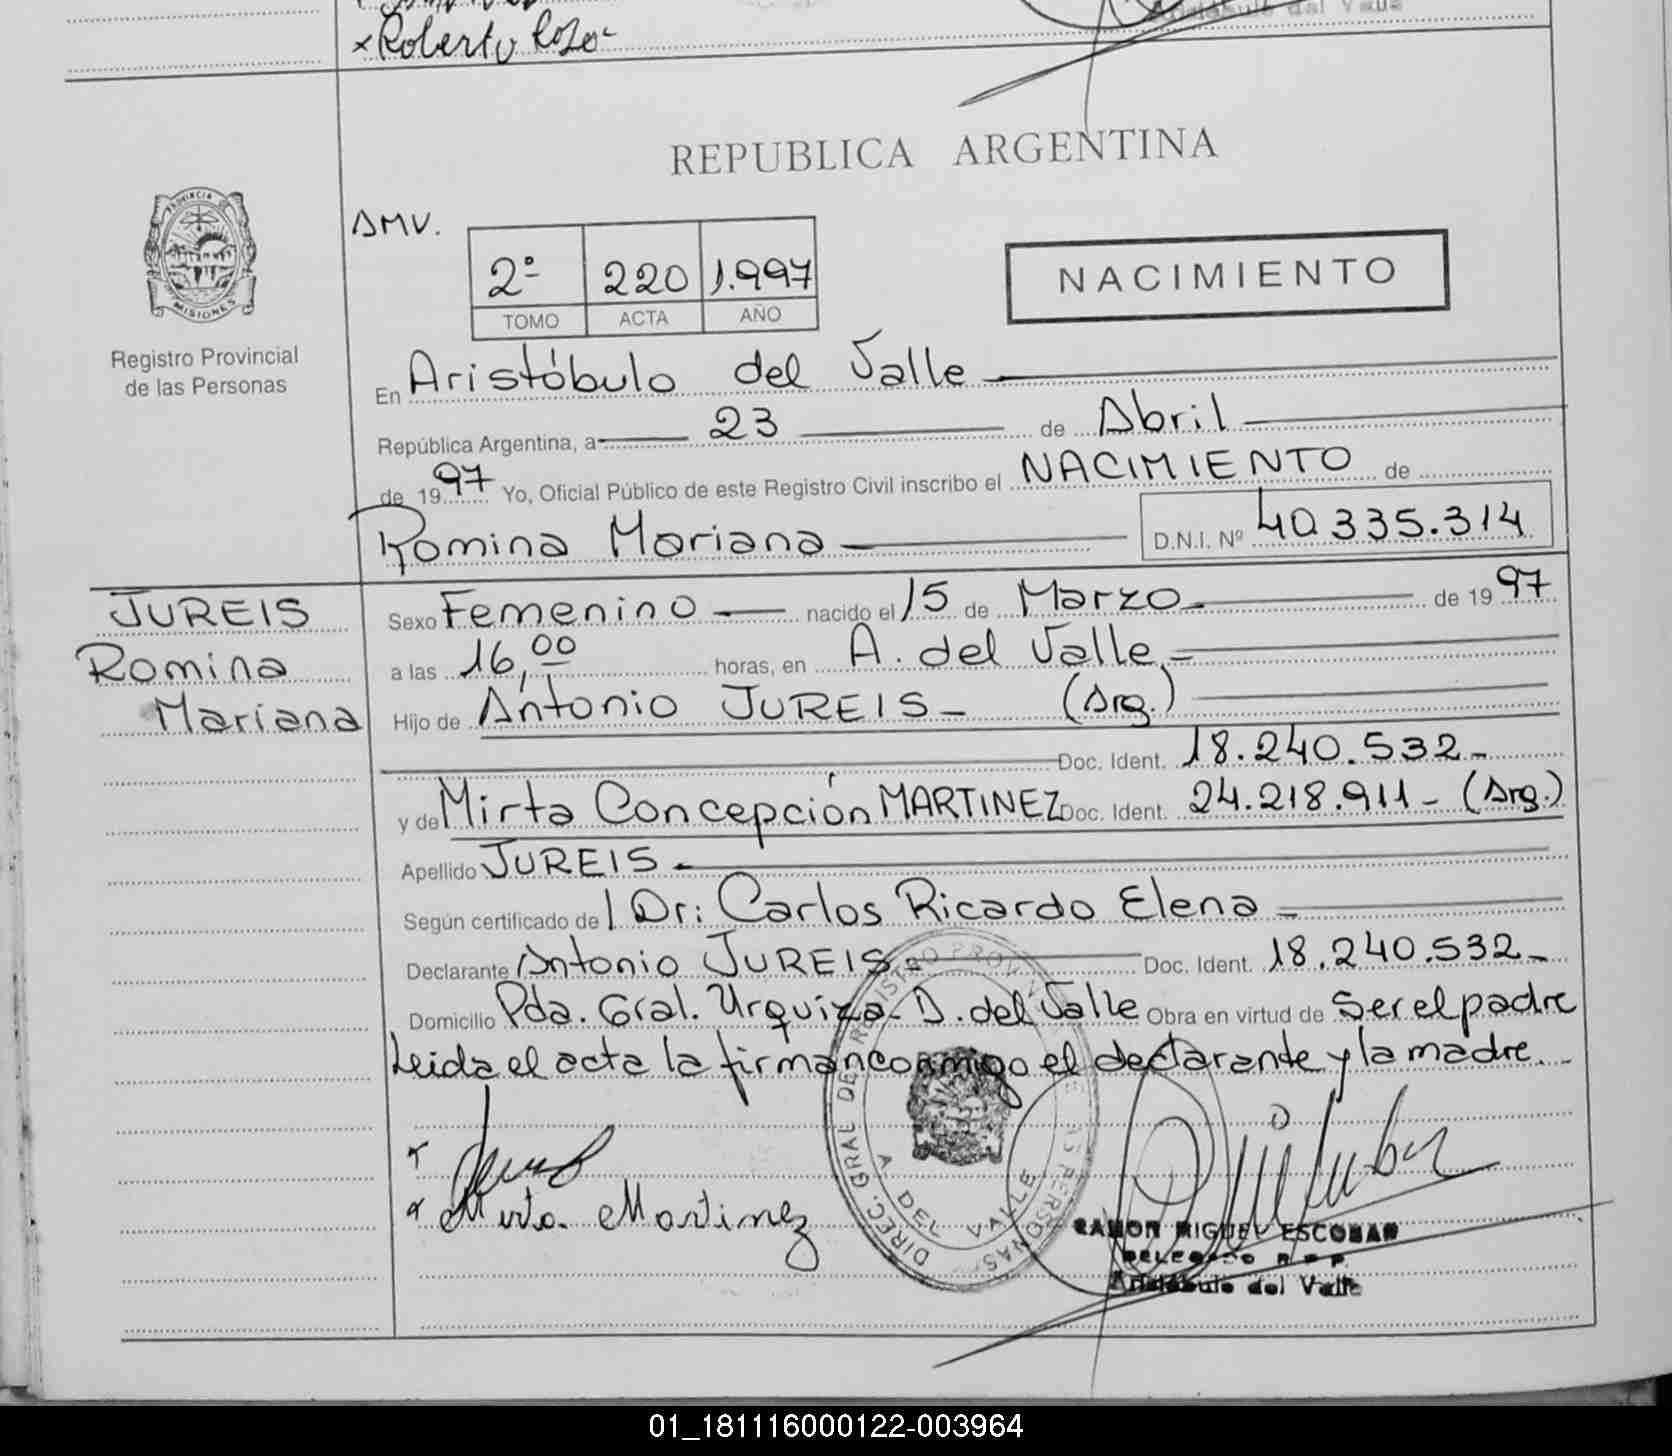 x Roberto
REPUBLICA ARGENTINA
PROVINCIA DE
MISIONES
Registro Provincial
de las Personas
AMV.
2º 220 1.997
TOMO ACTA AÑO
NACIMIENTO
En Aristóbulo del Valle
República Argentina, a 23 de Abril
de 1997 Yo, Oficial Público de este Registro Civil inscribo el NACIMIENTO de
Romina Mariana D.N.I. Nº 40.335.314
JUREIS
Romina
Mariana
Sexo Femenino nacido el 15 de Marzo de 1997
a las 16,00 horas, en A. del Valle.
Hijo de Antonio JUREIS (Arg.)
Doc. Ident. 18.240.532
y de Mirta Concepción MARTINEZ Doc. Ident. 24.218.911 (Arg.)
Apellido JUREIS
Según certificado de Dr: Carlos Ricardo Elena
Declarante Antonio JUREIS Doc. Ident. 18.240.532
Domicilio Pda. Gral. Urquiza. A. del Valle Obra en virtud de Ser el padre
Leida el acta la firman conmigo el declarante y la madre.
Mirta Martinez
DIREC. GRAL DE REGISTRO PROV. DE LAS PERSONAS
A DEL VALLE
RAMON MIGUEL ESCOBAR
DELEGADO R.P.P.
Aristóbulo del Valle
01_181116000122-003964